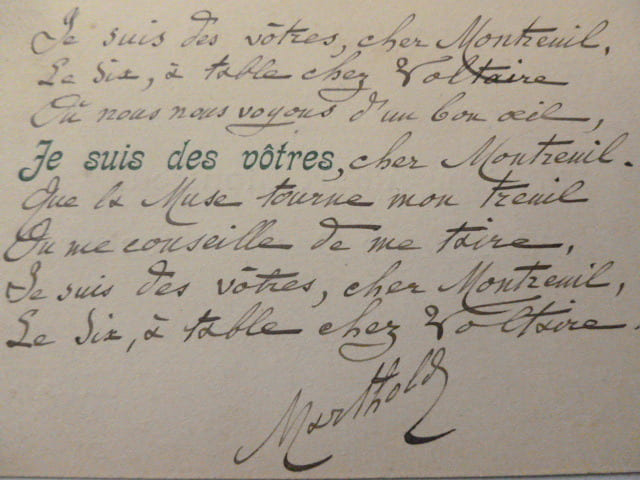 Je suis des vôtres, cher Montreuil,
Le Six, à table chez Voltaire
Où nous nous voyons d'un bon œil,
Je suis des vôtres, cher Montreuil.
Que la Muse tourne mon treuil
Ou me conseille de me taire,
Je suis des vôtres, cher Montreuil,
Le Six, à table chez Voltaire.
Marthold